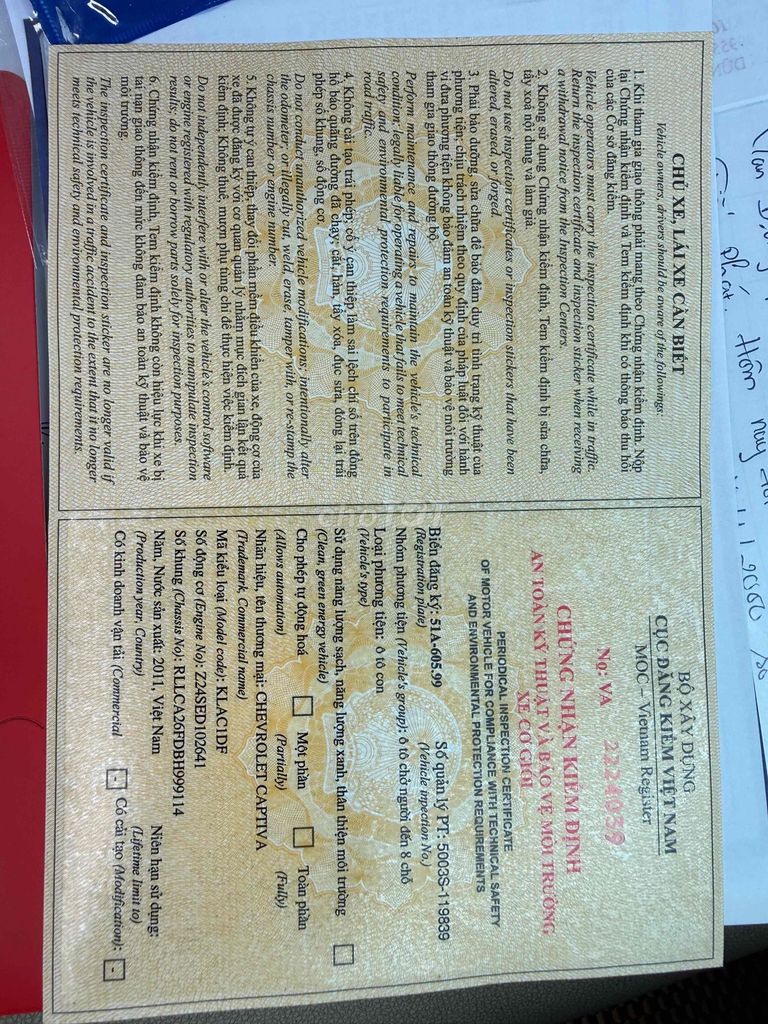 CHỦ XE, LÁI XE CẦN BIẾT
Vehicle owners, drivers should be aware of the followings:
1. Khi tham gia giao thông phải mang theo Chứng nhận kiểm định. Nộp
lại Chứng nhận kiểm định và Tem kiểm định khi có thông báo thu hồi
của các Cơ sở đăng kiểm.
Vehicle operators must carry the inspection certificate while in traffic.
Return the inspection certificate and inspection sticker when receiving
a withdrawal notice from the Inspection Centers.
2. Không sử dụng Chứng nhận kiểm định, Tem kiểm định bị sửa chữa,
tẩy xoá nội dung và làm giả.
Do not use inspection certificates or inspection stickers that have been
altered, erased, or forged.
3. Phải bảo dưỡng, sửa chữa để bảo đảm duy trì tình trạng kỹ thuật của
phương tiện; chịu trách nhiệm theo quy định của pháp luật đối với hành
vi đưa phương tiện không bảo đảm an toàn kỹ thuật và bảo vệ môi trường
tham gia giao thông đường bộ.
Perform maintenance and repairs to maintain the vehicle's technical
condition; legally liable for operating a vehicle that fails to meet technical
safety and environmental protection requirements to participate in
road traffic.
4. Không cải tạo trái phép, cố ý can thiệp làm sai lệch chỉ số trên đồng
hồ báo quãng đường đã chạy; cắt, hàn, tẩy xóa, đục sửa, đóng lại trái
phép số khung, số động cơ.
Do not conduct unauthorized vehicle modifications; intentionally alter
the odometer; or illegally cut, weld, erase, tamper with, or re-stamp the
chassis number or engine number.
5. Không tự ý can thiệp, thay đổi phần mềm điều khiển của xe, động cơ của
xe đã được đăng ký với cơ quan quản lý nhằm mục đích gian lận kết quả
kiểm định; Không thuê, mượn phụ tùng chỉ để thực hiện việc kiểm định.
Do not independently interfere with or alter the vehicle's control software
or engine registered with regulatory authorities to manipulate inspection
results; do not rent or borrow parts solely for inspection purposes.
6. Chứng nhận kiểm định, Tem kiểm định không còn hiệu lực khi xe bị
tai nạn giao thông đến mức không đảm bảo an toàn kỹ thuật và bảo vệ
môi trường.
The inspection certificate and inspection sticker are no longer valid if
the vehicle is involved in a traffic accident to the extent that it no longer
meets technical safety and environmental protection requirements.
BỘ XÂY DỰNG
CỤC ĐĂNG KIỂM VIỆT NAM
MOC – Vietnam Register
No: VA 2224039
CHỨNG NHẬN KIỂM ĐỊNH
AN TOÀN KỸ THUẬT VÀ BẢO VỆ MÔI TRƯỜNG
XE CƠ GIỚI
PERIODICAL INSPECTION CERTIFICATE
OF MOTOR VEHICLE FOR COMPLIANCE WITH TECHNICAL SAFETY
AND ENVIRONMENTAL PROTECTION REQUIREMENTS
Biển đăng ký: 51A-605.99 Số quản lý PT: 5003S-119839
(Registration plate) (Vehicle inpection No.)
Nhóm phương tiện (Vehicle's group): ô tô chở người đến 8 chỗ
Loại phương tiện: ô tô con
(Vehicle's type)
Sử dụng năng lượng sạch, năng lượng xanh, thân thiện môi trường
(Clean, green energy vehicle)
Cho phép tự động hoá Một phần Toàn phần
(Allows automation) (Partially) (Fully)
Nhãn hiệu, tên thương mại: CHEVROLET CAPTIVA
(Trademark, Commercial name)
Mã kiểu loại (Model code): KLAC1DF
Số động cơ (Engine No): Z24SED102641
Số khung (Chassis No): RLLCA26FDBH999114
Năm, Nước sản xuất: 2011, Việt Nam Niên hạn sử dụng:
(Production year, Country) (Lifetime limit to)
Có kinh doanh vận tải (Commercial - Có cải tạo (Modification): -
Hôm nay